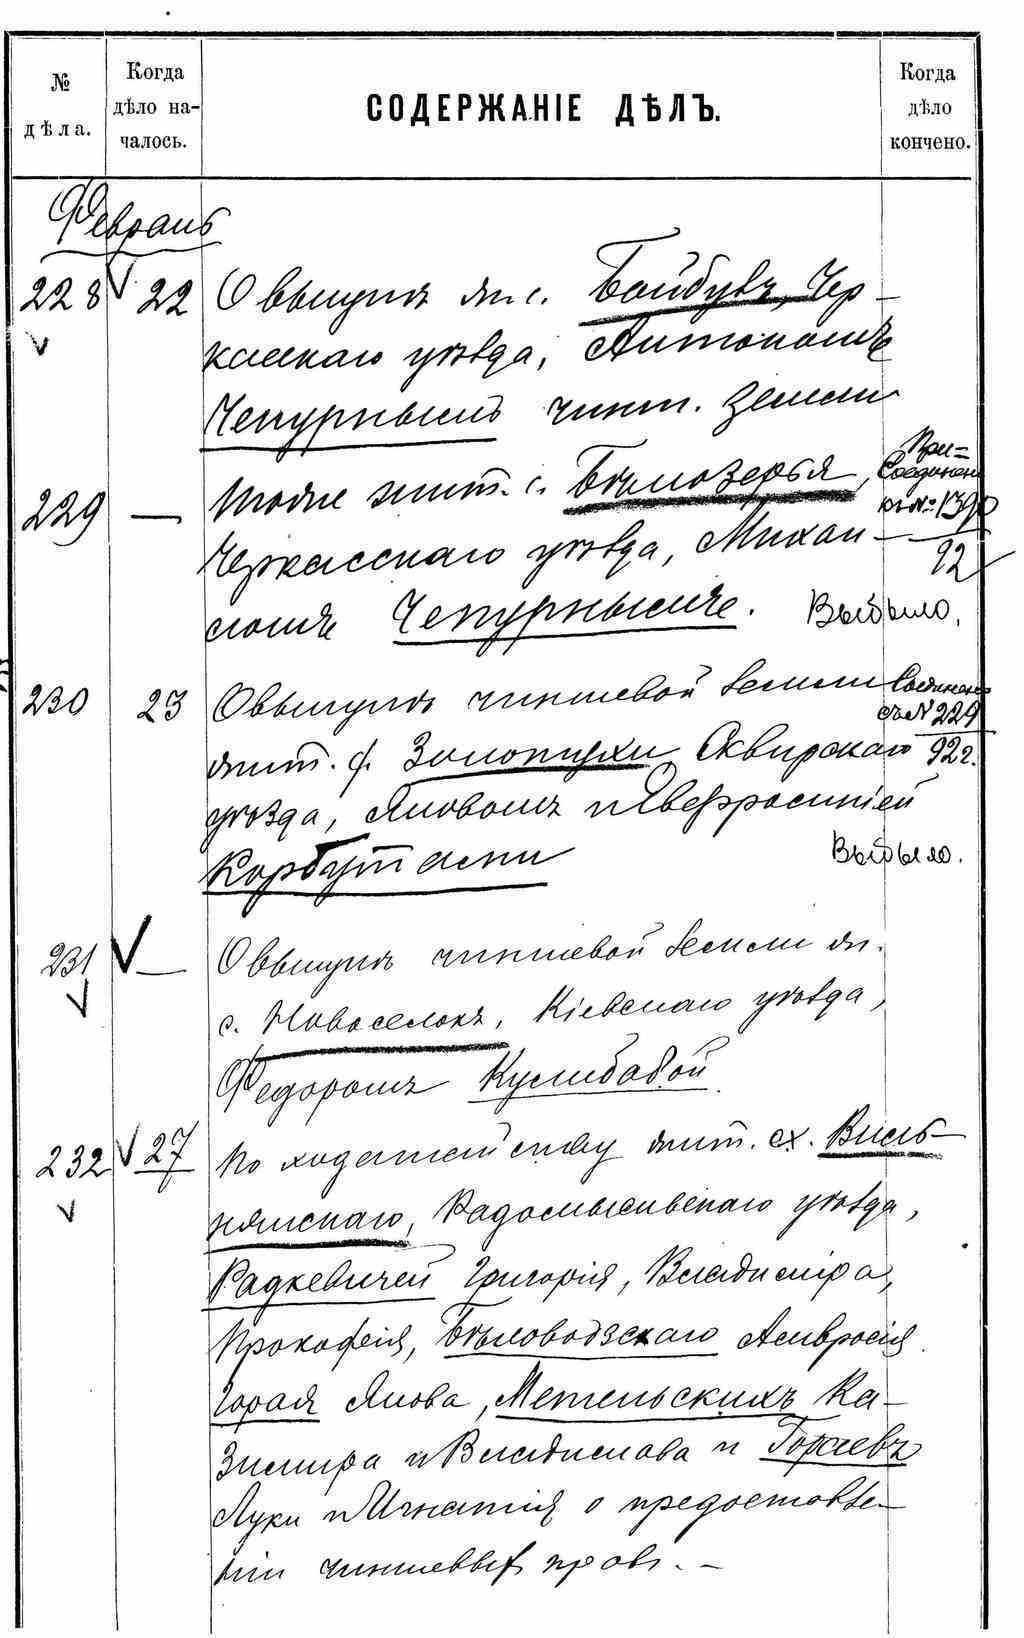 № дѣла.
Когда дѣло началось.
СОДЕРЖАНІЕ ДѢЛЪ.
Когда дѣло кончено.
Февраль
228 22 О выкупѣ жит. с. Байбузъ, Чер-
касскаго уѣзда, Антономъ
Чепурнымъ чинш. земли
229 — Тоже жит. с. Бѣлозерья,
При-
соединен
къ № 1390
92
Черкасскаго уѣзда, Михаи-
ломъ Чепурнымъ.
Выбыло.
230 23 О выкупѣ чиншевой земли
Соединено
съ № 229
92 г.
жит. д. Золотухи Сквирскаго
уѣзда, Яковомъ и Евфросиніей
Корбутами
Выбыло.
231 — О выкупѣ чиншевой земли жи.
с. Новоселокъ, Кіевскаго уѣзда,
Федоромъ Кулибабой
232 27 По ходатайству жит. сх. Виль-
нянскаго, Радомысльскаго уѣзда,
Радкевичей Григорія, Владиміра,
Прокофія, Бѣловодзскаго Амвросія
Горая Якова, Метельскихъ Ка-
зиміра и Владислава и Гораевъ
Луки и Игнатія о предоставле-
ніи чиншевых правъ. -